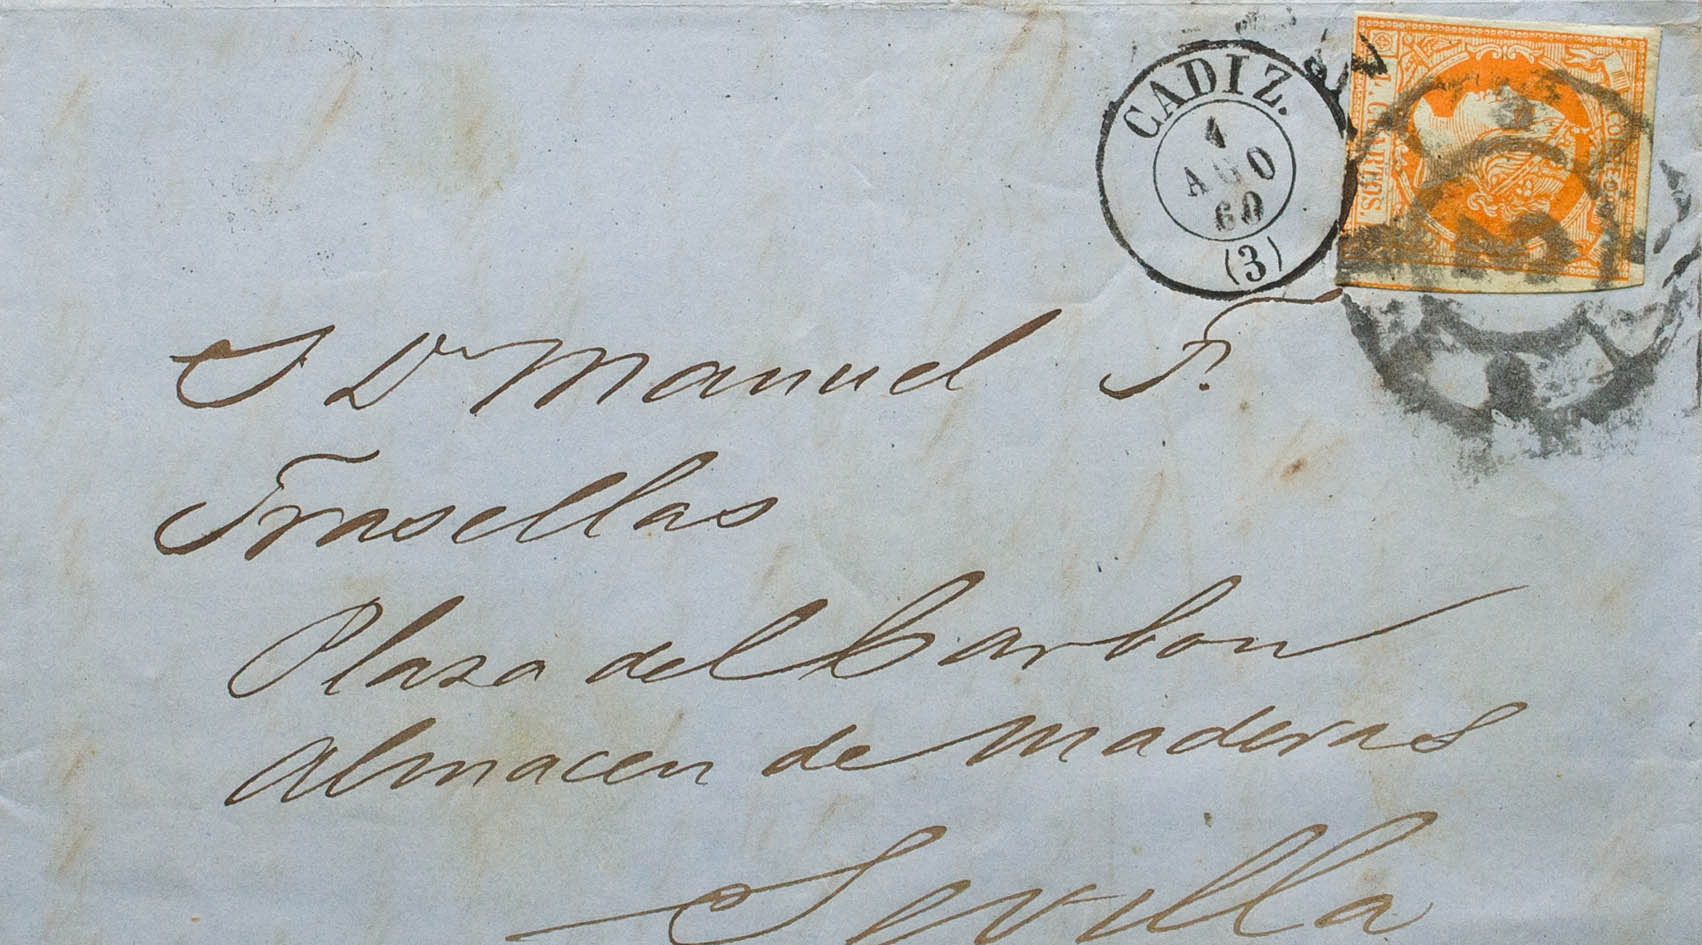 CADIZ.
4
AGO
60
(3)
4. CUARTOS.
CORREOS
S Dn Manuel F.
Trasellas
Plaza del Carbon
almacen de maderas
Sevilla